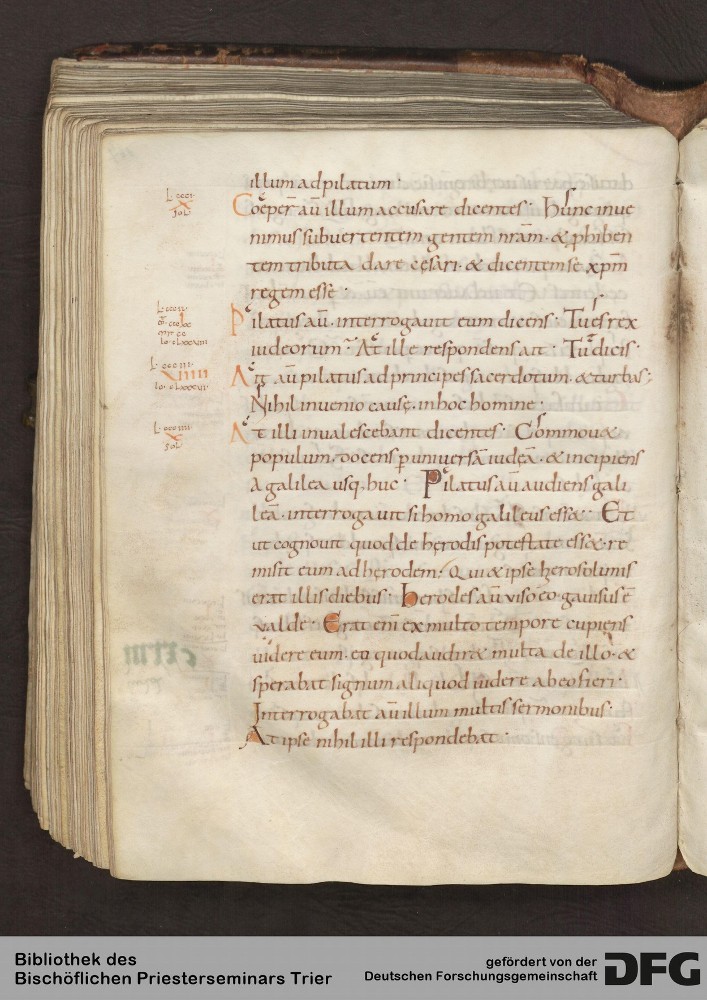 illum adpilatum·
L· cccı·
Coeper̄ aū illum accusare dicentes· Hunc inue
X
Sol·
nimus subuertentem gentem nr̄am· & ꝓhiben
tem tributa dare cęsari· & dicentem se xp̄m
regem esse·
L· cccıı·
Pilatus aū· interrogauit eum dicens· Tu es rex
iudeorum· At ille respondens ait· Tu dicis·
L· cccııı·
Aıt aū pilatus ad principes sacerdotum· & turbas;
Nihil inuenio causę· in hoc homine·
L· cccıııı·
At illi inualescebant dicentes· Commou&
X
Sol·
populum· docens ꝑ uniuersā iudęā· & incipiens
a galilea usq· huc· Pilatus aū audiens gali
leā· interrogauit si homo galileus ess&· Et
ut cognouit quod de hęrodis potestate ess&· re
misit eum ad hęrodem· Qui & ipse hierosolimis
erat illis diebus· Herodes aū uiso eo gauisus ē
ualde· Erat enī ex multo tempore cupiens
uidere eum· eo quod audir& multa de illo· &
sperabat signum aliquod uidere ab eo fieri·
Interrogabat aū illum multis sermonibus·
At ipse nihil illi respondebat·
Bibliothek des
Bischöflichen Priesterseminars Trier
gefördert von der
Deutschen Forschungsgemeinschaft
DFG